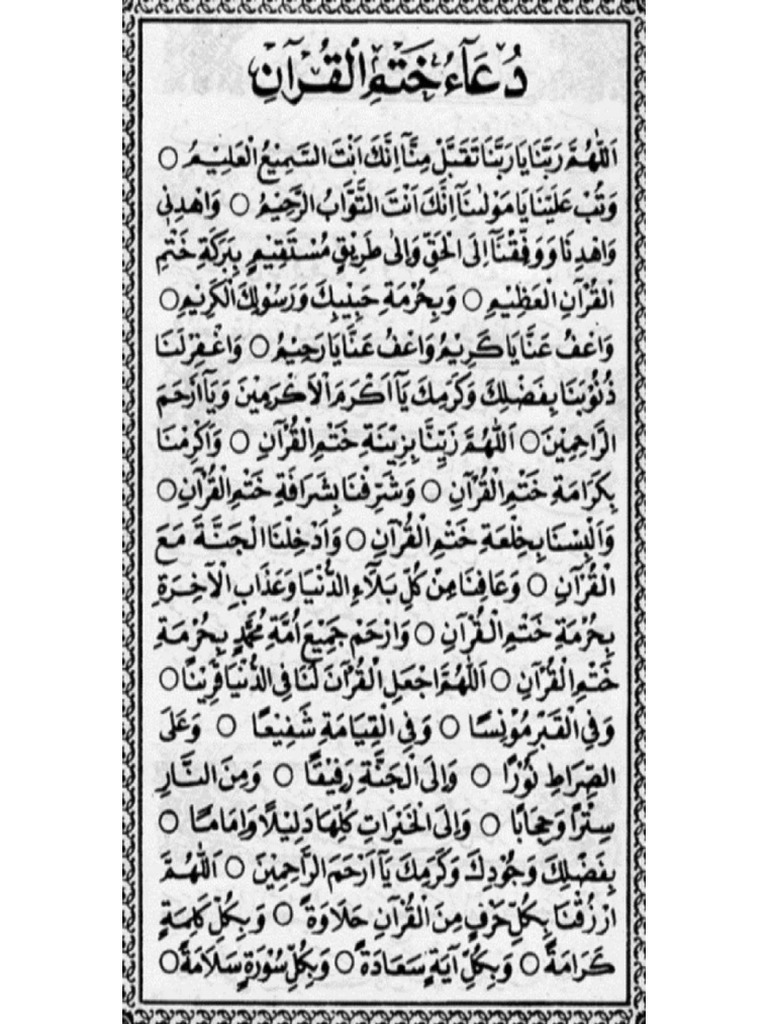 دُعَآءُ خَتْمِ الْقُرْآنِ
اَللّٰهُمَّ رَبَّنَا يَا رَبَّنَا تَقَبَّلْ مِنَّآ اِنَّكَ اَنْتَ السَّمِيْعُ الْعَلِيْمُ ○
وَتُبْ عَلَيْنَا يَا مَوْلٰينَآ اِنَّكَ اَنْتَ التَّوَّابُ الرَّحِيْمُ ○ وَاهْدِنِى
وَاهْدِنَا وَوَفِّقْنَآ اِلَى الْحَقِّ وَاِلٰى طَرِيْقٍ مُسْتَقِيْمٍ بِبَرَكَةِ خَتْمِ
الْقُرْآنِ الْعَظِيْمِ ○ وَبِحُرْمَةِ حَبِيْبِكَ وَرَسُوْلِكَ الْكَرِيْمِ ○
وَاعْفُ عَنَّا يَا كَرِيْمُ وَاعْفُ عَنَّا يَا رَحِيْمُ ○ وَاغْفِرْلَنَا
ذُنُوْبَنَا بِفَضْلِكَ وَكَرَمِكَ يَآ اَكْرَمَ الْاَكْرَمِيْنَ وَيَآ اَرْحَمَ
الرَّاحِمِيْنَ ○ اَللّٰهُمَّ زَيِّنَّا بِزِيْنَةِ خَتْمِ الْقُرْآنِ ○ وَاَكْرِمْنَا
بِكَرَامَةِ خَتْمِ الْقُرْآنِ ○ وَشَرِّفْنَا بِشَرَافَةِ خَتْمِ الْقُرْآنِ ○
وَاَلْبِسْنَا بِخِلْعَةِ خَتْمِ الْقُرْآنِ ○ وَاَدْخِلْنَا الْجَنَّةَ مَعَ
الْقُرْآنِ ○ وَعَافِنَا مِنْ كُلِّ بَلَآءِ الدُّنْيَا وَعَذَابِ الْآخِرَةِ
بِحُرْمَةِ خَتْمِ الْقُرْآنِ ○ وَارْحَمْ جَمِيْعَ اُمَّةِ مُحَمَّدٍ بِحُرْمَةِ
خَتْمِ الْقُرْآنِ ○ اَللّٰهُمَّ اجْعَلِ الْقُرْآنَ لَنَا فِى الدُّنْيَا قَرِيْنًا ○
وَفِى الْقَبْرِ مُوْنِسًا ○ وَفِى الْقِيَامَةِ شَفِيْعًا ○ وَعَلَى
الصِّرَاطِ نُوْرًا ○ وَاِلَى الْجَنَّةِ رَفِيْقًا ○ وَمِنَ النَّارِ
سِتْرًا وَحِجَابًا ○ وَاِلَى الْخَيْرَاتِ كُلِّهَا دَلِيْلًا وَاِمَامًا ○
بِفَضْلِكَ وَجُوْدِكَ وَكَرَمِكَ يَآ اَرْحَمَ الرَّاحِمِيْنَ ○ اَللّٰهُمَّ
ارْزُقْنَا بِكُلِّ حَرْفٍ مِنَ الْقُرْآنِ حَلَاوَةً ○ وَبِكُلِّ كَلِمَةٍ
كَرَامَةً ○ وَبِكُلِّ آيَةٍ سَعَادَةً ○ وَبِكُلِّ سُوْرَةٍ سَلَامَةً ○